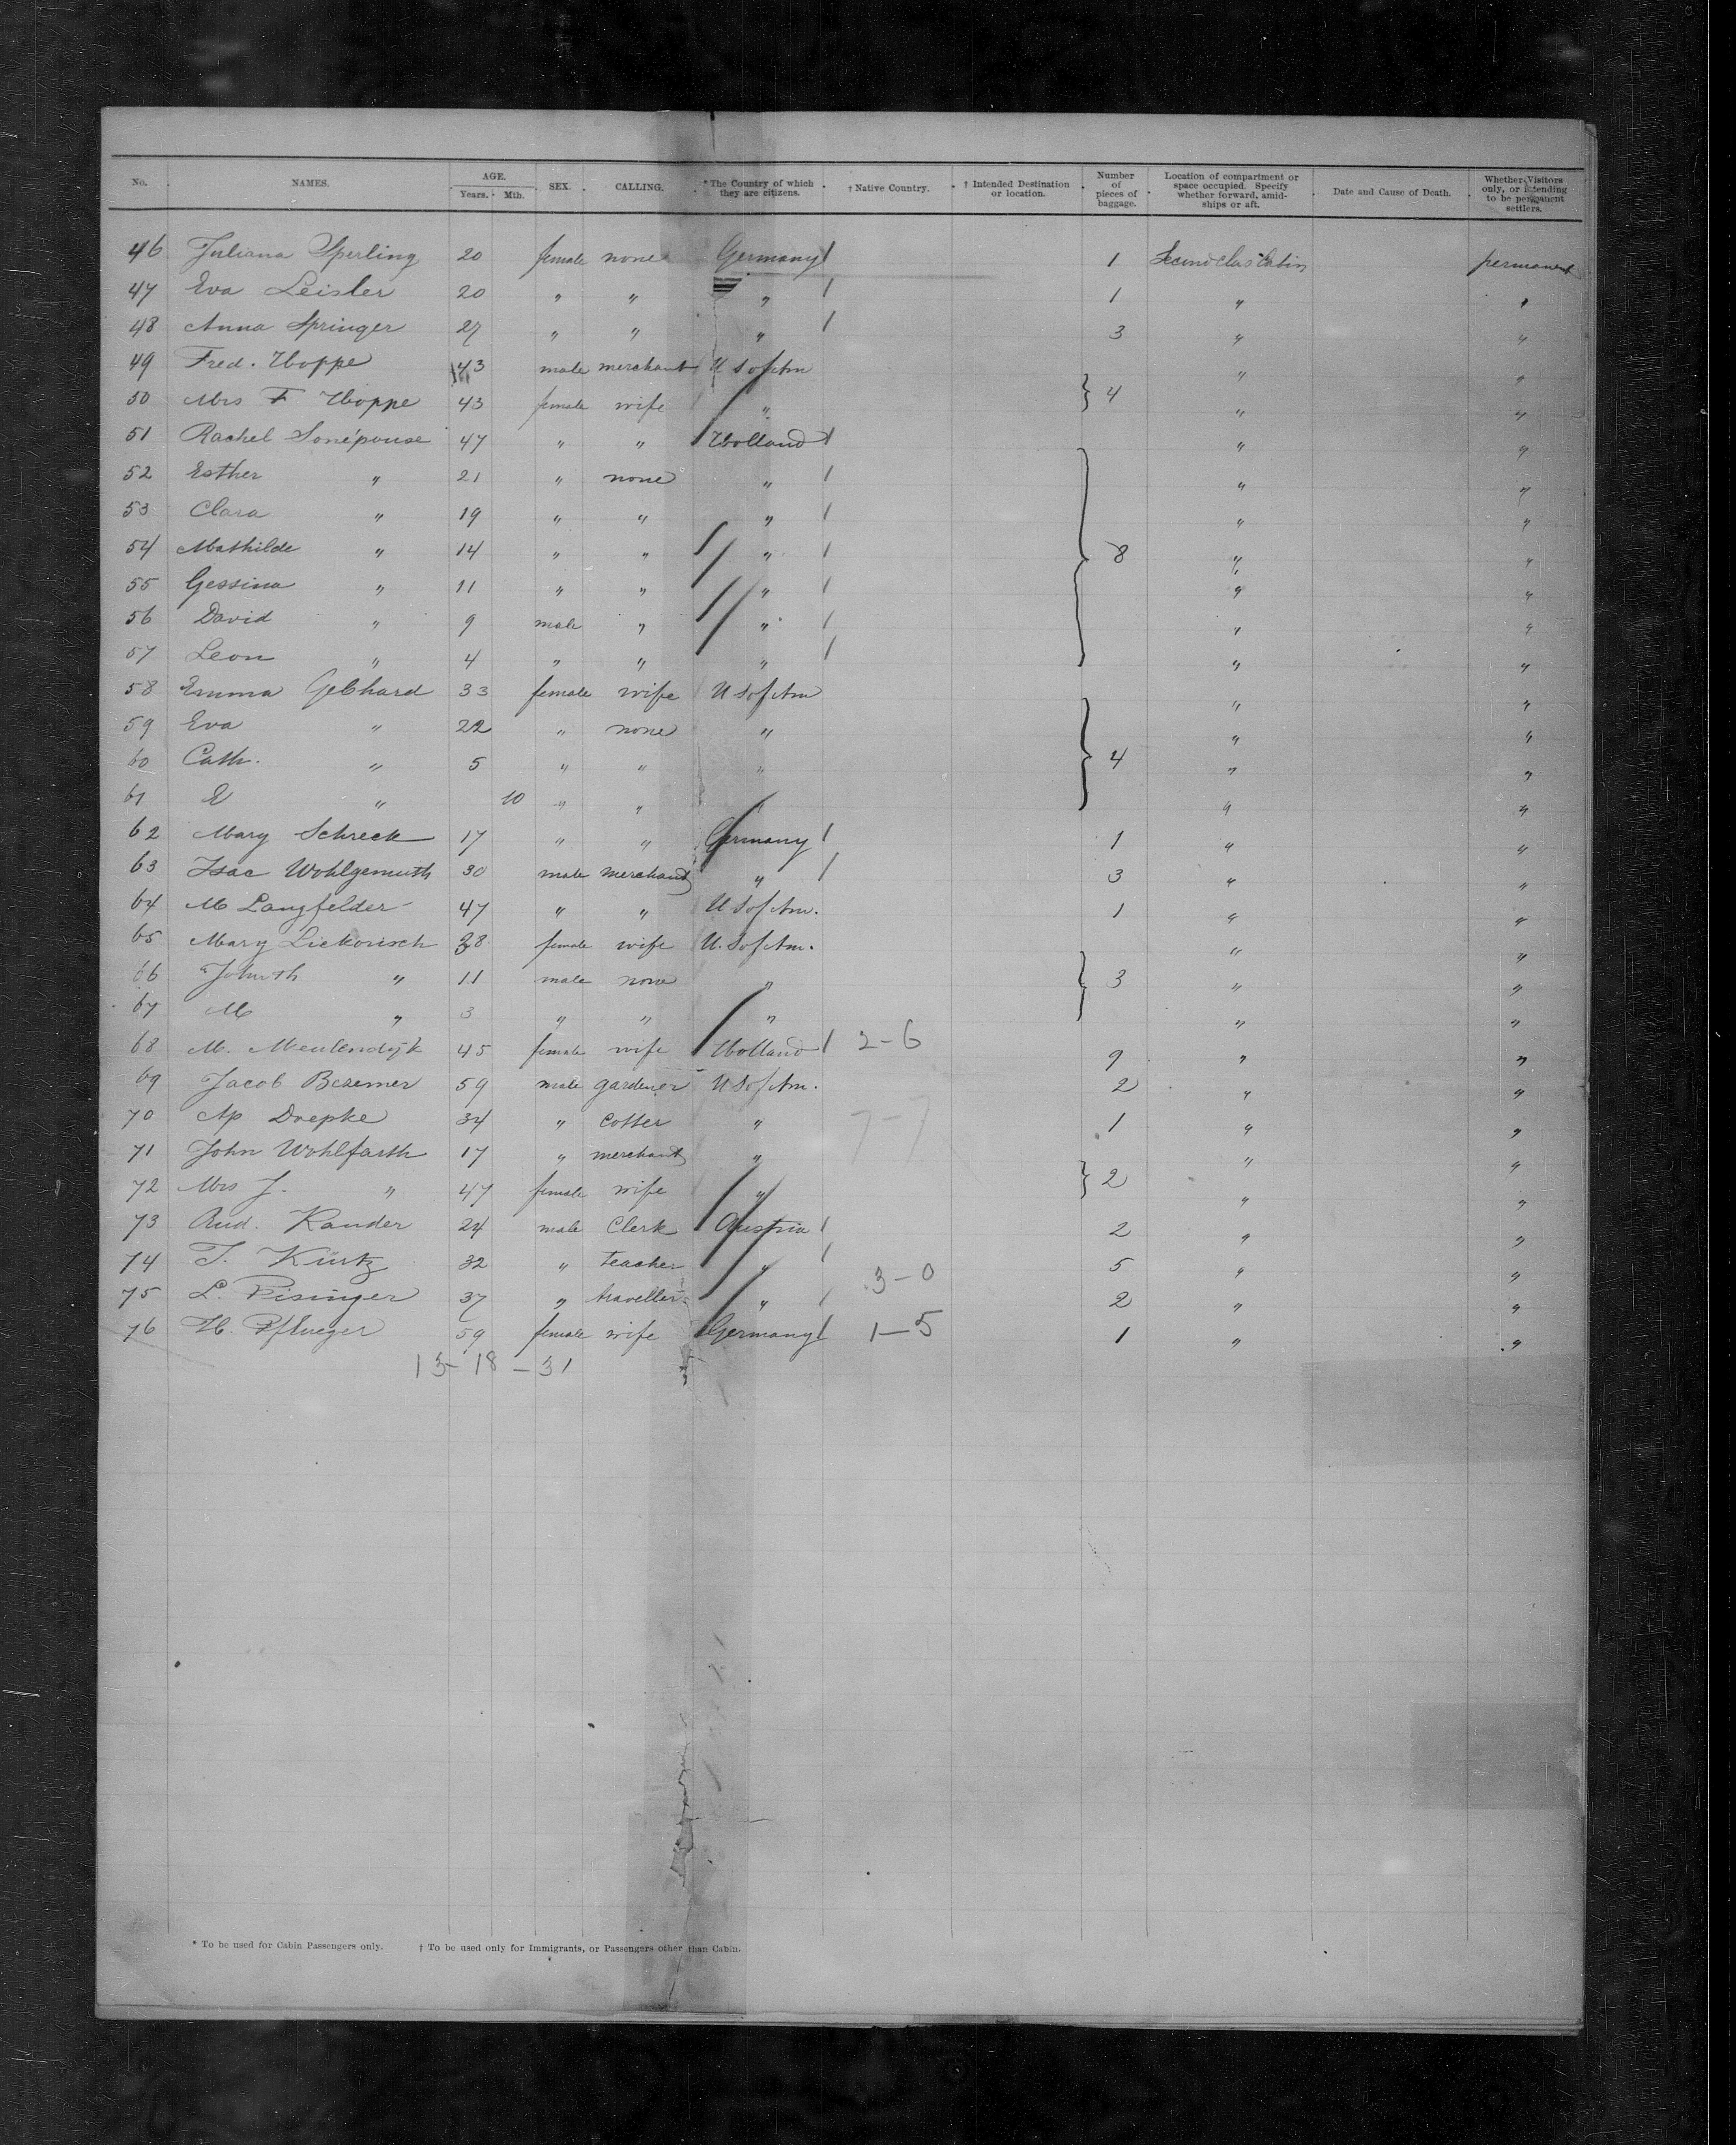 No. NAMES. AGE. Years. Mth. SEX. CALLING. *The Country of which they are citizens. † Native Country. † Intended Destination or location. Number of pieces of baggage. Location of compartment or space occupied. Specify whether forward, amidships or aft. Date and Cause of Death. Whether Visitors only, or intending to be permanent settlers.
46 Juliana Sperling 20 female none Germany / 1 Second Class Cabin permanent
47 Eva Leisler 20 " " " / 1 " "
48 Anna Springer 27 " " " / 3 " "
49 Fred. Hoppe 43 male merchant U S of Am " "
50 Mrs F Hoppe 43 female wife " } 4 " "
51 Rachel Sonépouse 47 " " Holland / " "
52 Esther " 21 " none " / " "
53 Clara " 19 " " " / " "
54 Mathilde " 14 " " " / } 8 " "
55 Gessina " 11 " " " / " "
56 David " 9 male " " / " "
57 Leon " 4 " " " / " "
58 Emma Gebhard 33 female wife U S of Am " "
59 Eva " 22 " none " " "
60 Cath. " 5 " " " } 4 " "
61 E " 10 " " " " "
62 Mary Schreck 17 " " Germany / 1 " "
63 Isac Wohlgemuth 30 male merchant " / 3 " "
64 M Langfelder 47 " " U S of Am. 1 " "
65 Mary Liekorisch 38 female wife U. S of Am. " "
66 " 11 male none " } 3 " "
67 M " 3 " " " " "
68 M. Meulendijk 45 female wife Holland / 2-6 9 " "
69 Jacob Besemer 59 male gardener U S of Am. 2 " "
70 Ap Drepke 34 " Cotter " 7-7 1 " "
71 John Wohlfarth 17 " merchant " " "
72 Mrs J. " 47 female wife " } 2 " "
73 Rud. Kander 24 male Clerk Austria / 2 " "
74 T. Kürtz 32 " teacher " / 5 " "
75 L. Pisinger 37 " traveller " / 3-0 2 " "
76 H. Pflueger 59 female wife Germany / 1-5 1 " "
13-18-31
* To be used for Cabin Passengers only. † To be used only for Immigrants, or Passengers other than Cabin.